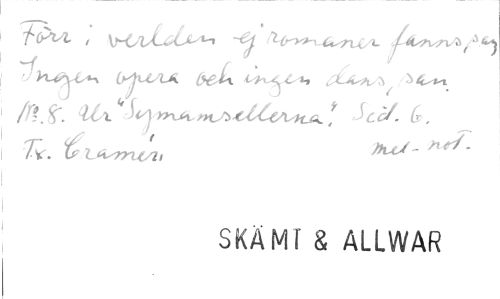 Förr i verlden ej romaner fanns, san
Ingen opera och ingen dans, san.
No. 8. Ur "Symamsellerna". Sid. 6.
Tx. Cramér. mel-not.
SKÄMT & ALLWAR